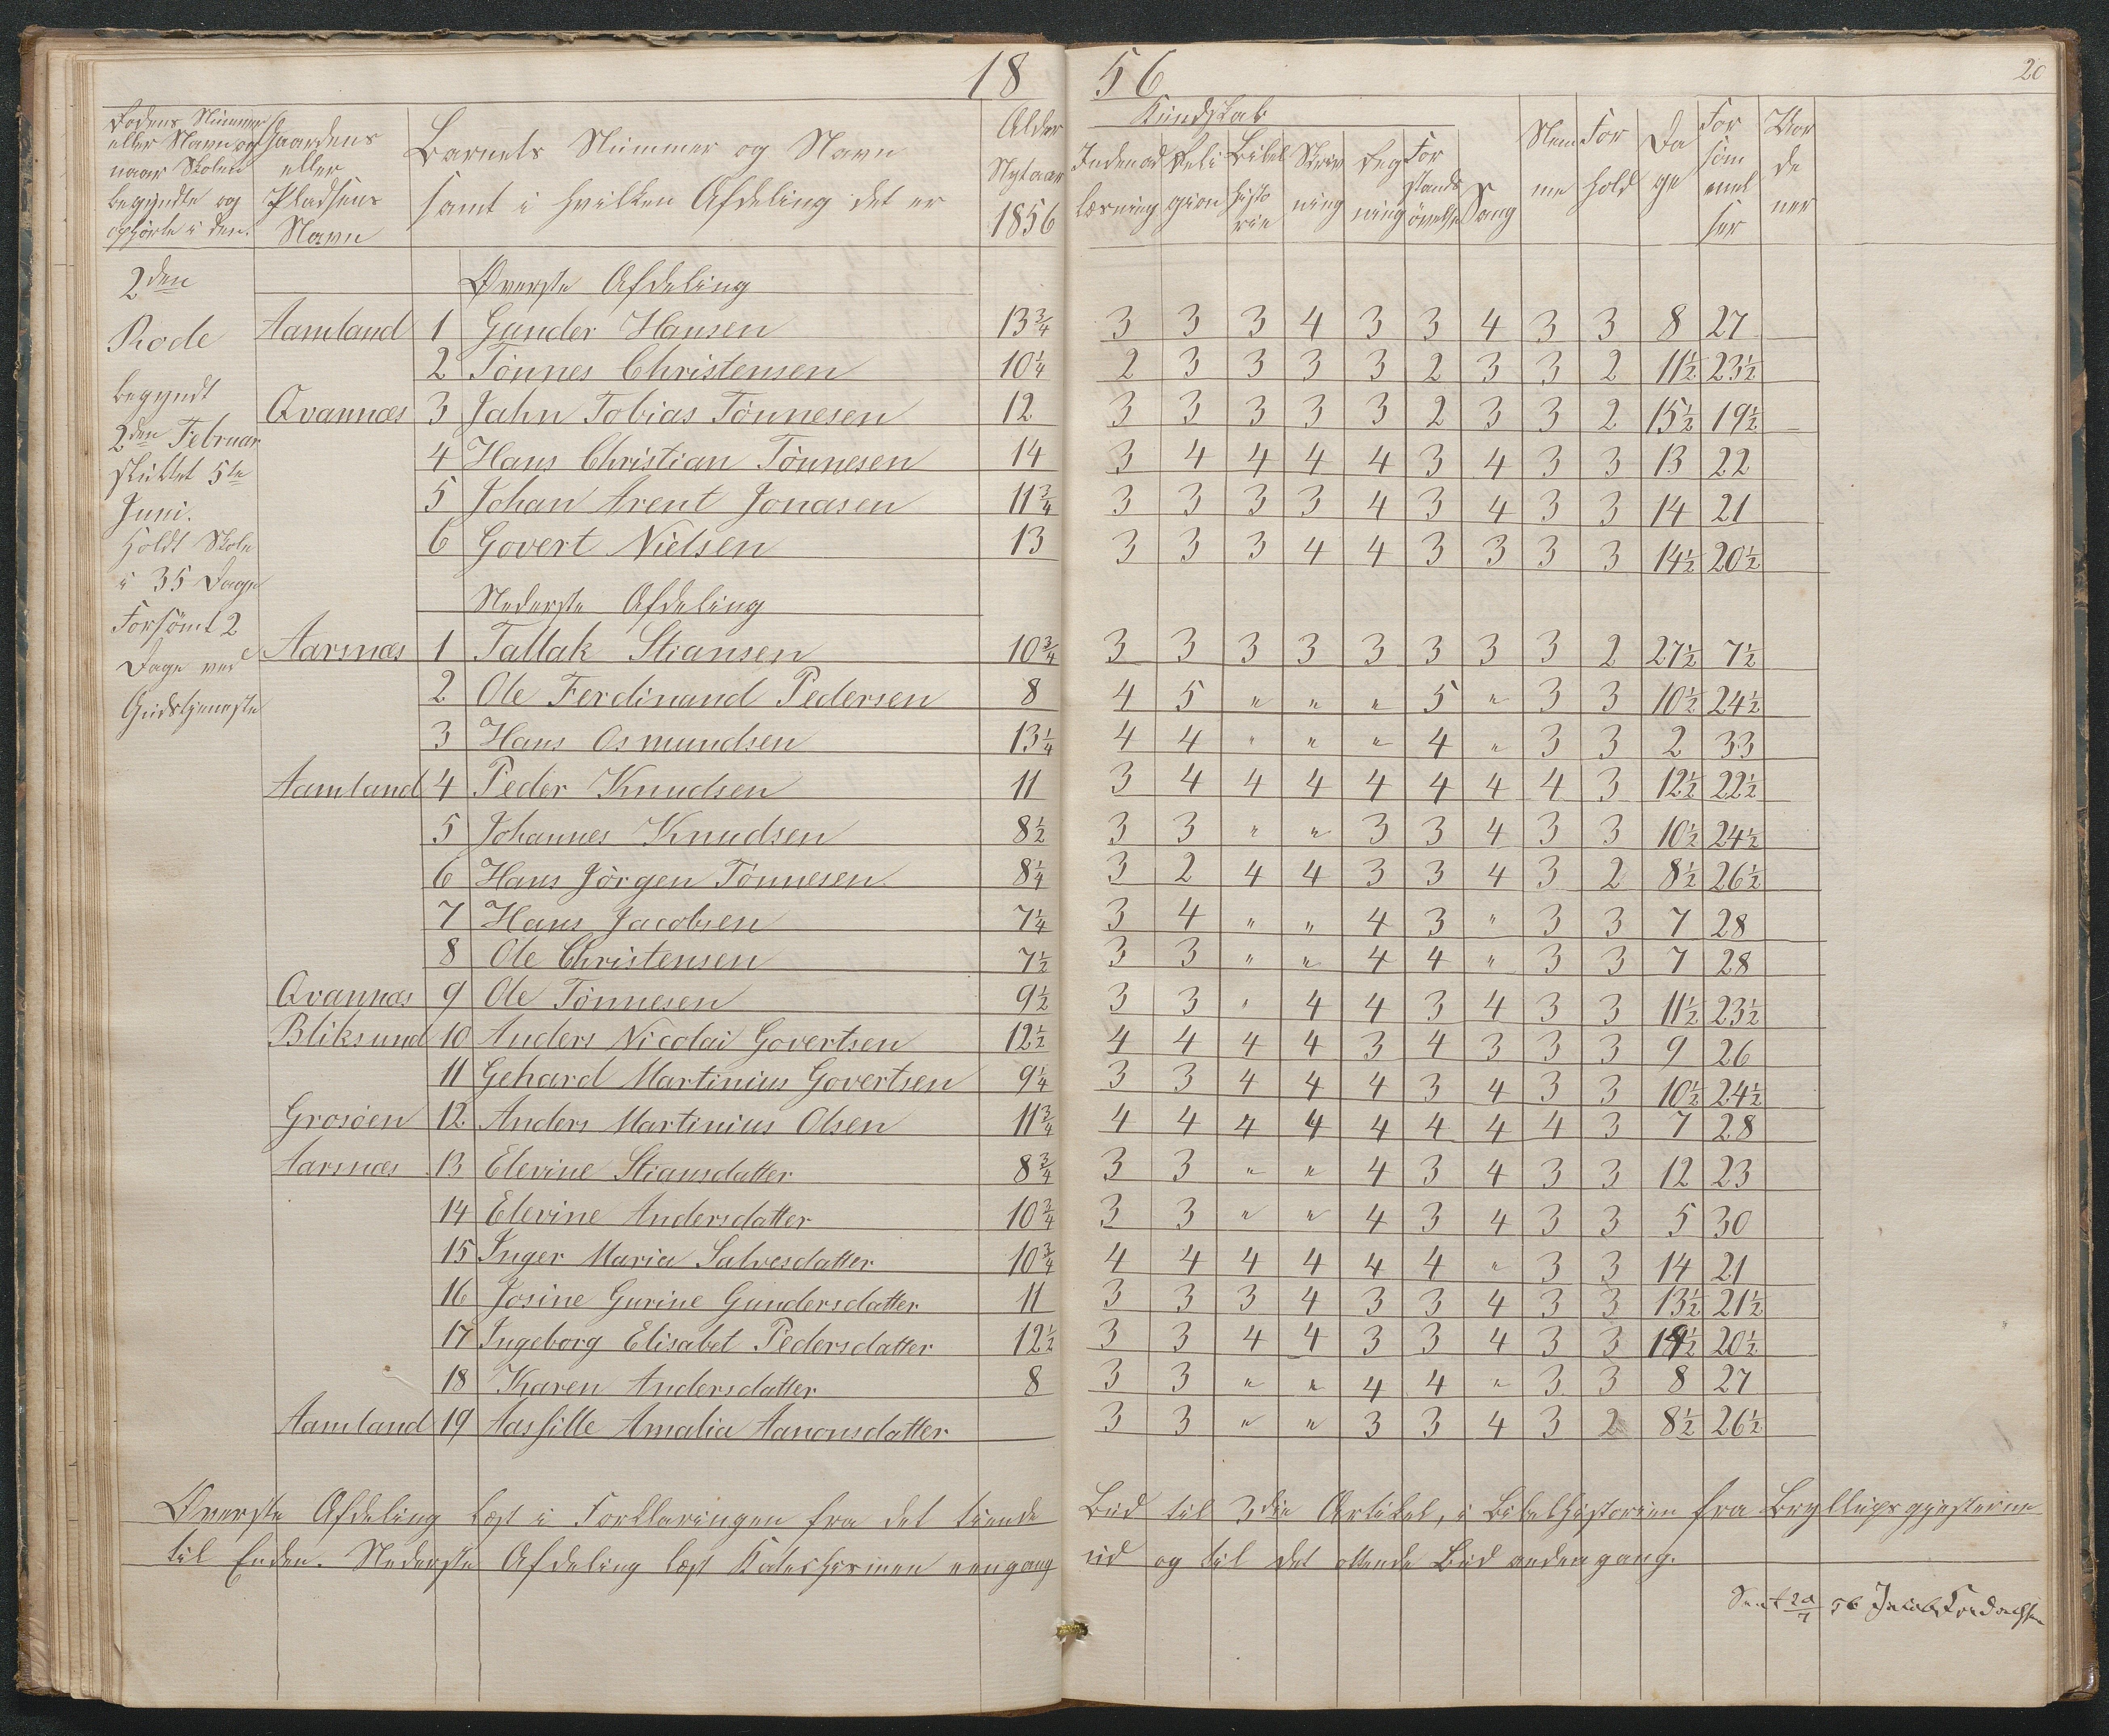 18 56
20
Rodens Nummer eller Navn og naar Skolen begyndte og ophörte i den.
Gaardens eller Pladsens Navn
Barnets Nummer og Navn samt i hvilken Afdeling det er
Alder Nytaar 1856
Kundskab
Indenad læsning
Reli gion
Bibel histo rie
Skriv ning
Reg ning
For stands övelse
Sang
Nem me
For hold
Da ge
For söm mel ser
Vor de ner
2den Rode begyndt 2den Februar sluttet 5te Juni. Holdt Skole i 35 Dage Forsömt 2 Dage ved Gudstjeneste
Øverste Afdeling
Aamland 1 Gunder Hansen 13¾ 3 3 3 4 3 3 4 3 3 8 27
2 Tönnes Christensen 10¼ 2 3 3 3 3 2 3 3 2 11½ 23½
Qvannæs 3 Jahn Tobias Tönnesen 12 3 3 3 3 3 2 3 3 2 15½ 19½
4 Hans Christian Tönnesen 14 3 4 4 4 4 3 4 3 3 13 22
5 Johan Arent Jonasen 11¾ 3 3 3 3 4 3 4 3 3 14 21
6 Govert Nielsen 13 3 3 3 4 4 3 3 3 3 14½ 20½
Nederste Afdeling
Aarsnæs 1 Tallak Stiansen 10¾ 3 3 3 3 3 3 3 3 2 27½ 7½
2 Ole Ferdinand Pedersen 8 4 5 " " " 5 " 3 3 10½ 24½
3 Hans Osmundsen 13¼ 4 4 " " " 4 " 3 3 2 33
Aamland 4 Peder Knudsen 11 3 4 4 4 4 4 4 4 3 12½ 22½
5 Johannes Knudsen 8½ 3 3 " " 3 3 4 3 3 10½ 24½
6 Hans Jörgen Tönnesen 8¼ 3 2 4 4 3 3 4 3 2 8½ 26½
7 Hans Jacobsen 7¼ 3 4 " " 4 3 " 3 3 7 28
8 Ole Christensen 7½ 3 3 " " 4 4 " 3 3 7 28
Qvannæs 9 Ole Tönnesen 9½ 3 3 " 4 4 3 4 3 3 11½ 23½
Bliksund 10 Anders Nicolai Govertsen 12½ 4 4 4 4 3 4 3 3 3 9 26
11 Gehard Martinius Govertsen 9¼ 3 3 4 4 4 3 4 3 3 10½ 24½
Grosöen 12 Anders Martinius Olsen 11¾ 4 4 4 4 4 4 4 4 3 7 28
Aarsnæs 13 Elevine Stiansdatter 8¾ 3 3 " " 4 3 4 3 3 12 23
14 Elevine Andersdatter 10¾ 3 3 " " 4 3 4 3 3 5 30
15 Inger Maria Salvesdatter 10¾ 4 4 4 4 4 4 " 3 3 14 21
16 Josine Gurine Gundersdatter 11 3 3 3 4 3 3 4 3 3 13½ 21½
17 Ingeborg Elisabet Pedersdatter 12½ 3 3 4 4 3 3 4 3 3 14½ 20½
18 Karen Andersdatter 8 3 3 " " 4 4 " 3 3 8 27
Aamland 19 Aasille Amalia Aanonsdatter 3 3 " " 3 3 4 3 2 8½ 26½
Øverste Afdeling læst i Forklaringen fra det tiende Bud til 3die Artikel, i Bibelhistorien fra Bryllupsgjesterne
til Enden. Nederste Afdeling læst Katechismen eengang ud og til det ottende Bud anden gang.
56 Jacob